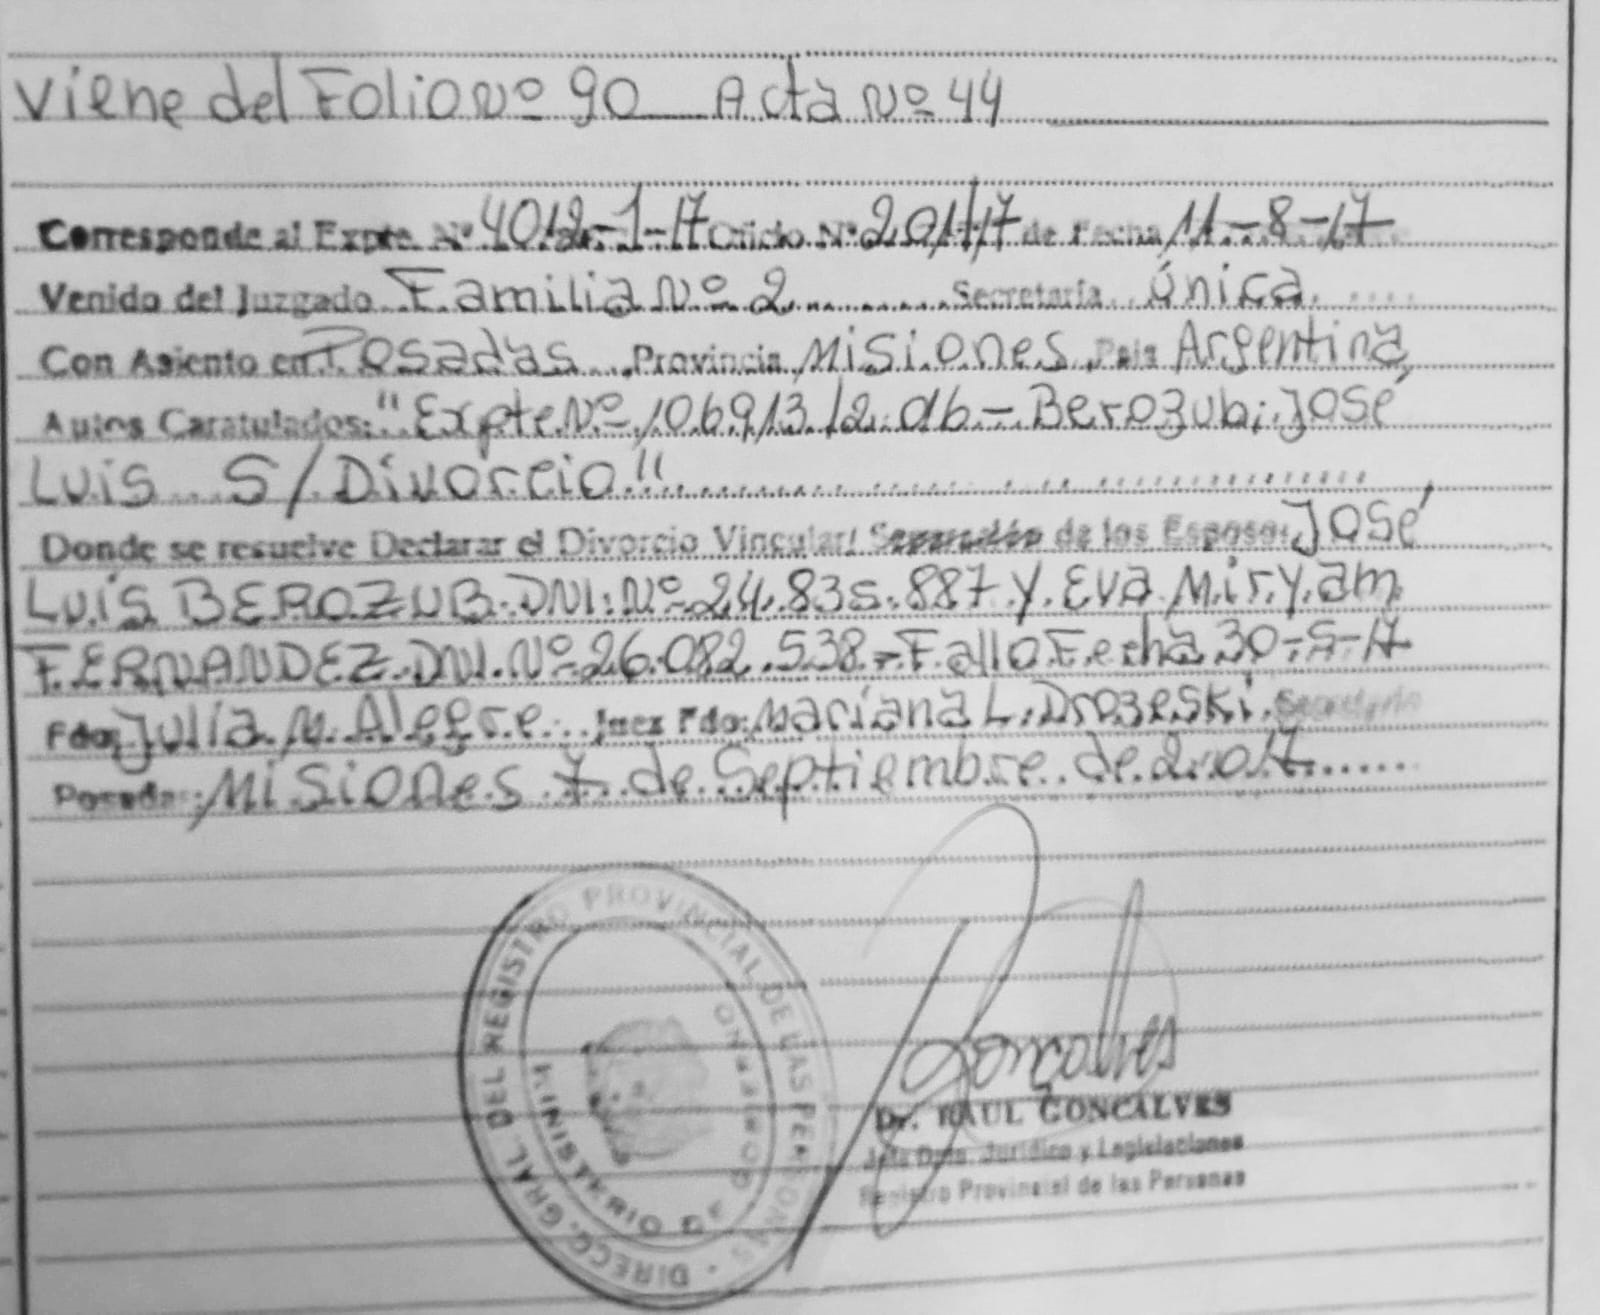 Viene del Folio Nº 90 Acta Nº 44
Corresponde al Expte Nº 4012-1-17 Oficio Nº 201/17 de Fecha 11-8-17
Venido del Juzgado Familia Nº 2 Secretaría Única
Con Asiento en Posadas Provincia Misiones Pais Argentina
Autos Caratulados: "Expte. Nº 106913/2.016 - Berozub; José
Luis S/Divorcio"
Donde se resuelve Declarar el Divorcio Vincular/ de los Esposos: José
Luís BEROZUB. DNI. Nº 24.835.887 y Eva Miryam
FERNANDEZ. DNI. Nº 26.082.538 - Fallo Fecha 30-5-17
Fdo: Julia M. Alegre Juez Fdo: Mariana L. Drozeski. Secretaria
Posadas: Misiones 7 de Septiembre de 2.017
DIRECC. GRAL. DEL REGISTRO PROVINCIAL DE LAS PERSONAS
MINISTERIO DE GOBIERNO
Goncalves
Dr. RAUL GONCALVES
Jefe Dpto. Jurídico y Legislaciones
Registro Provincial de las Personas